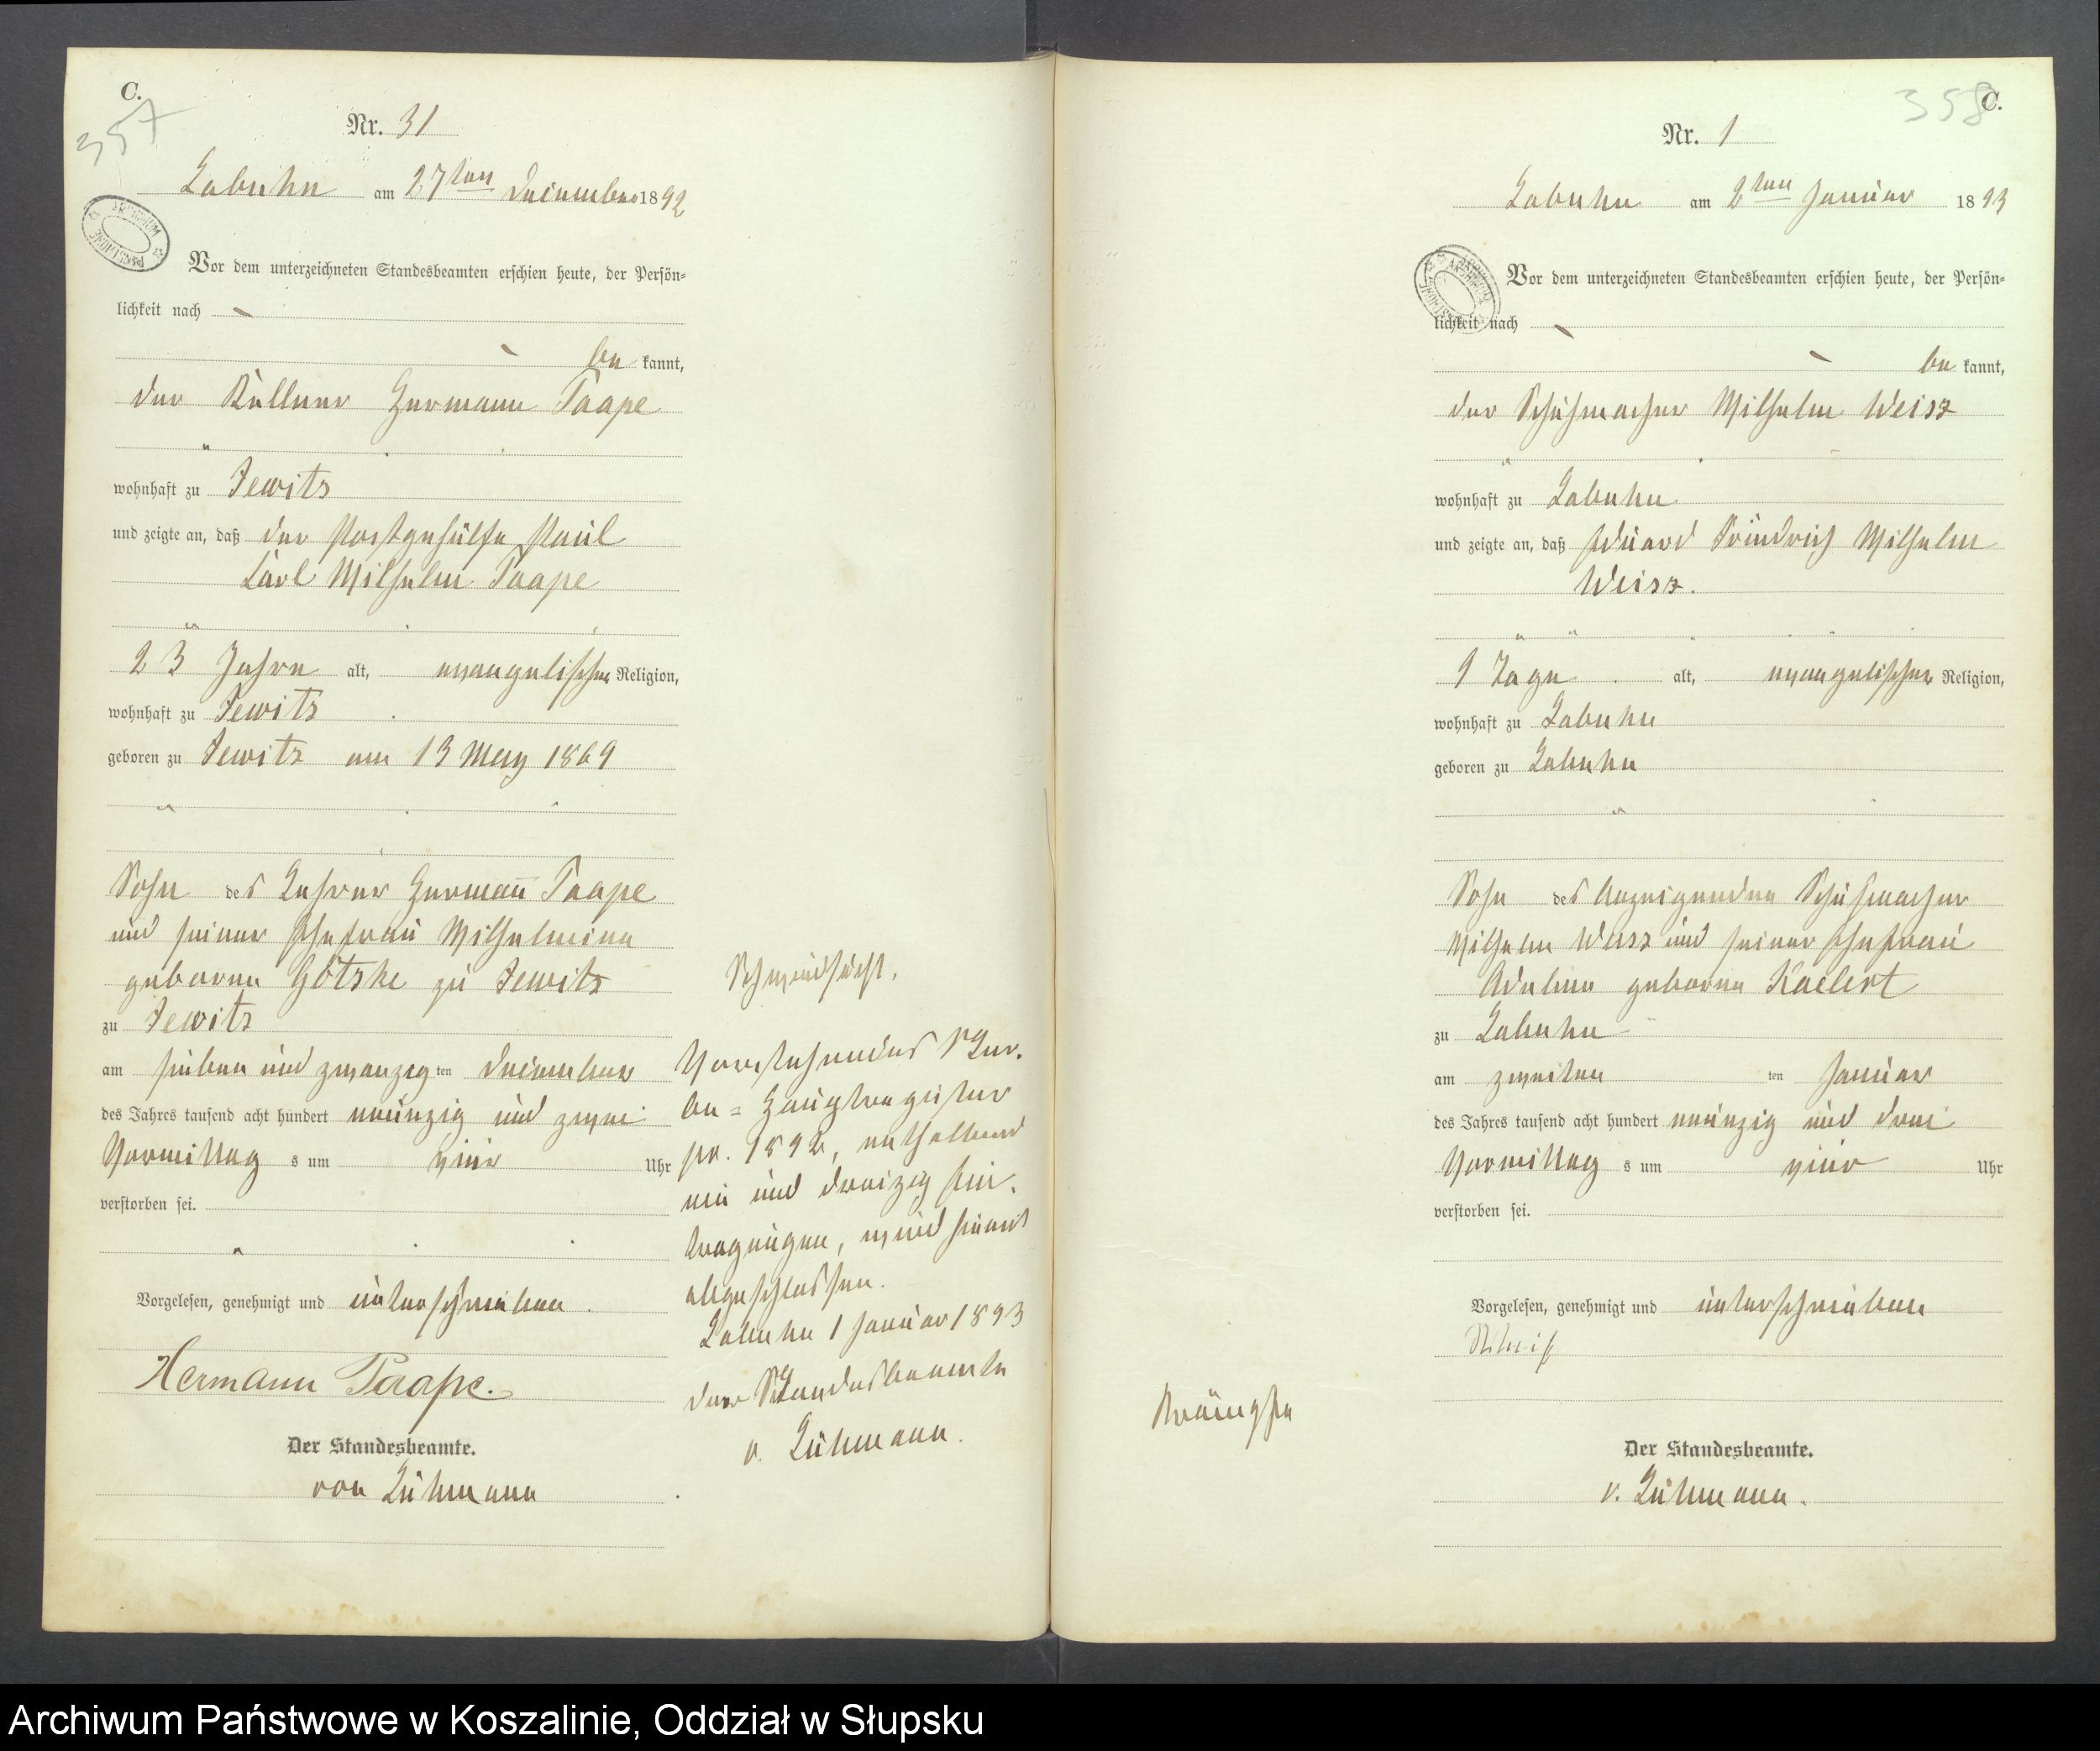 C.
357
Nr. 31
Labuhn am 27ten Dezember 1892
Vor dem unterzeichneten Standesbeamten erschien heute, der Persön-
lichkeit nach
be kannt,
der Kellner Hermann Paape
wohnhaft zu Jewitz
und zeigte an, daß der Postgehülfe Paul
Carl Wilhelm Paape
23 Jahre alt, evangelischer Religion,
wohnhaft zu Jewitz
geboren zu Jewitz am 13 May 1869
Sohn des Lehrer Hermann Paape
und seiner Ehefrau Wilhelmine
geborne Götzke zu Jewitz
zu Jewitz
am sieben und zwanzig ten Dezember
des Jahres tausend acht hundert neunzig und zwei
Vormittag s um vier Uhr
verstorben sei.
Vorgelesen, genehmigt und unterschrieben
Hermann Paape.
Der Standesbeamte.
von Lühmann
Schwindsucht.
Vorstehendes Ster-
be = Hauptregister
pr. 1892, enthaltend
ein und dreizig Ein-
tragungen, wird hiermit
abgeschlossen.
Labuhn 1 Januar 1893
Der Standesbeamte
v. Lühmann.
358
C.
Nr. 1
Labuhn am 2ten Januar 1893
Vor dem unterzeichneten Standesbeamten erschien heute, der Persön-
lichkeit nach
be kannt,
der Schuhmacher Wilhelm Weisz
wohnhaft zu Labuhn
und zeigte an, daß Eduard Friedrich Wilhelm
Weisz.
9 Tage alt, evangelischer Religion,
wohnhaft zu Labuhn
geboren zu Labuhn
Sohn des Anzeigenden Schuhmacher
Wilhelm Weisz und seiner Ehefrau
Adeline geborne
zu Labuhn
am zweiten ten Januar
des Jahres tausend acht hundert neunzig und drei
Vormittag s um vier Uhr
verstorben sei.
Vorgelesen, genehmigt und unterschrieben
Weiß
Krämpfe
Der Standesbeamte.
v. Lühmann.
Archiwum Państwowe w Koszalinie, Oddział w Słupsku